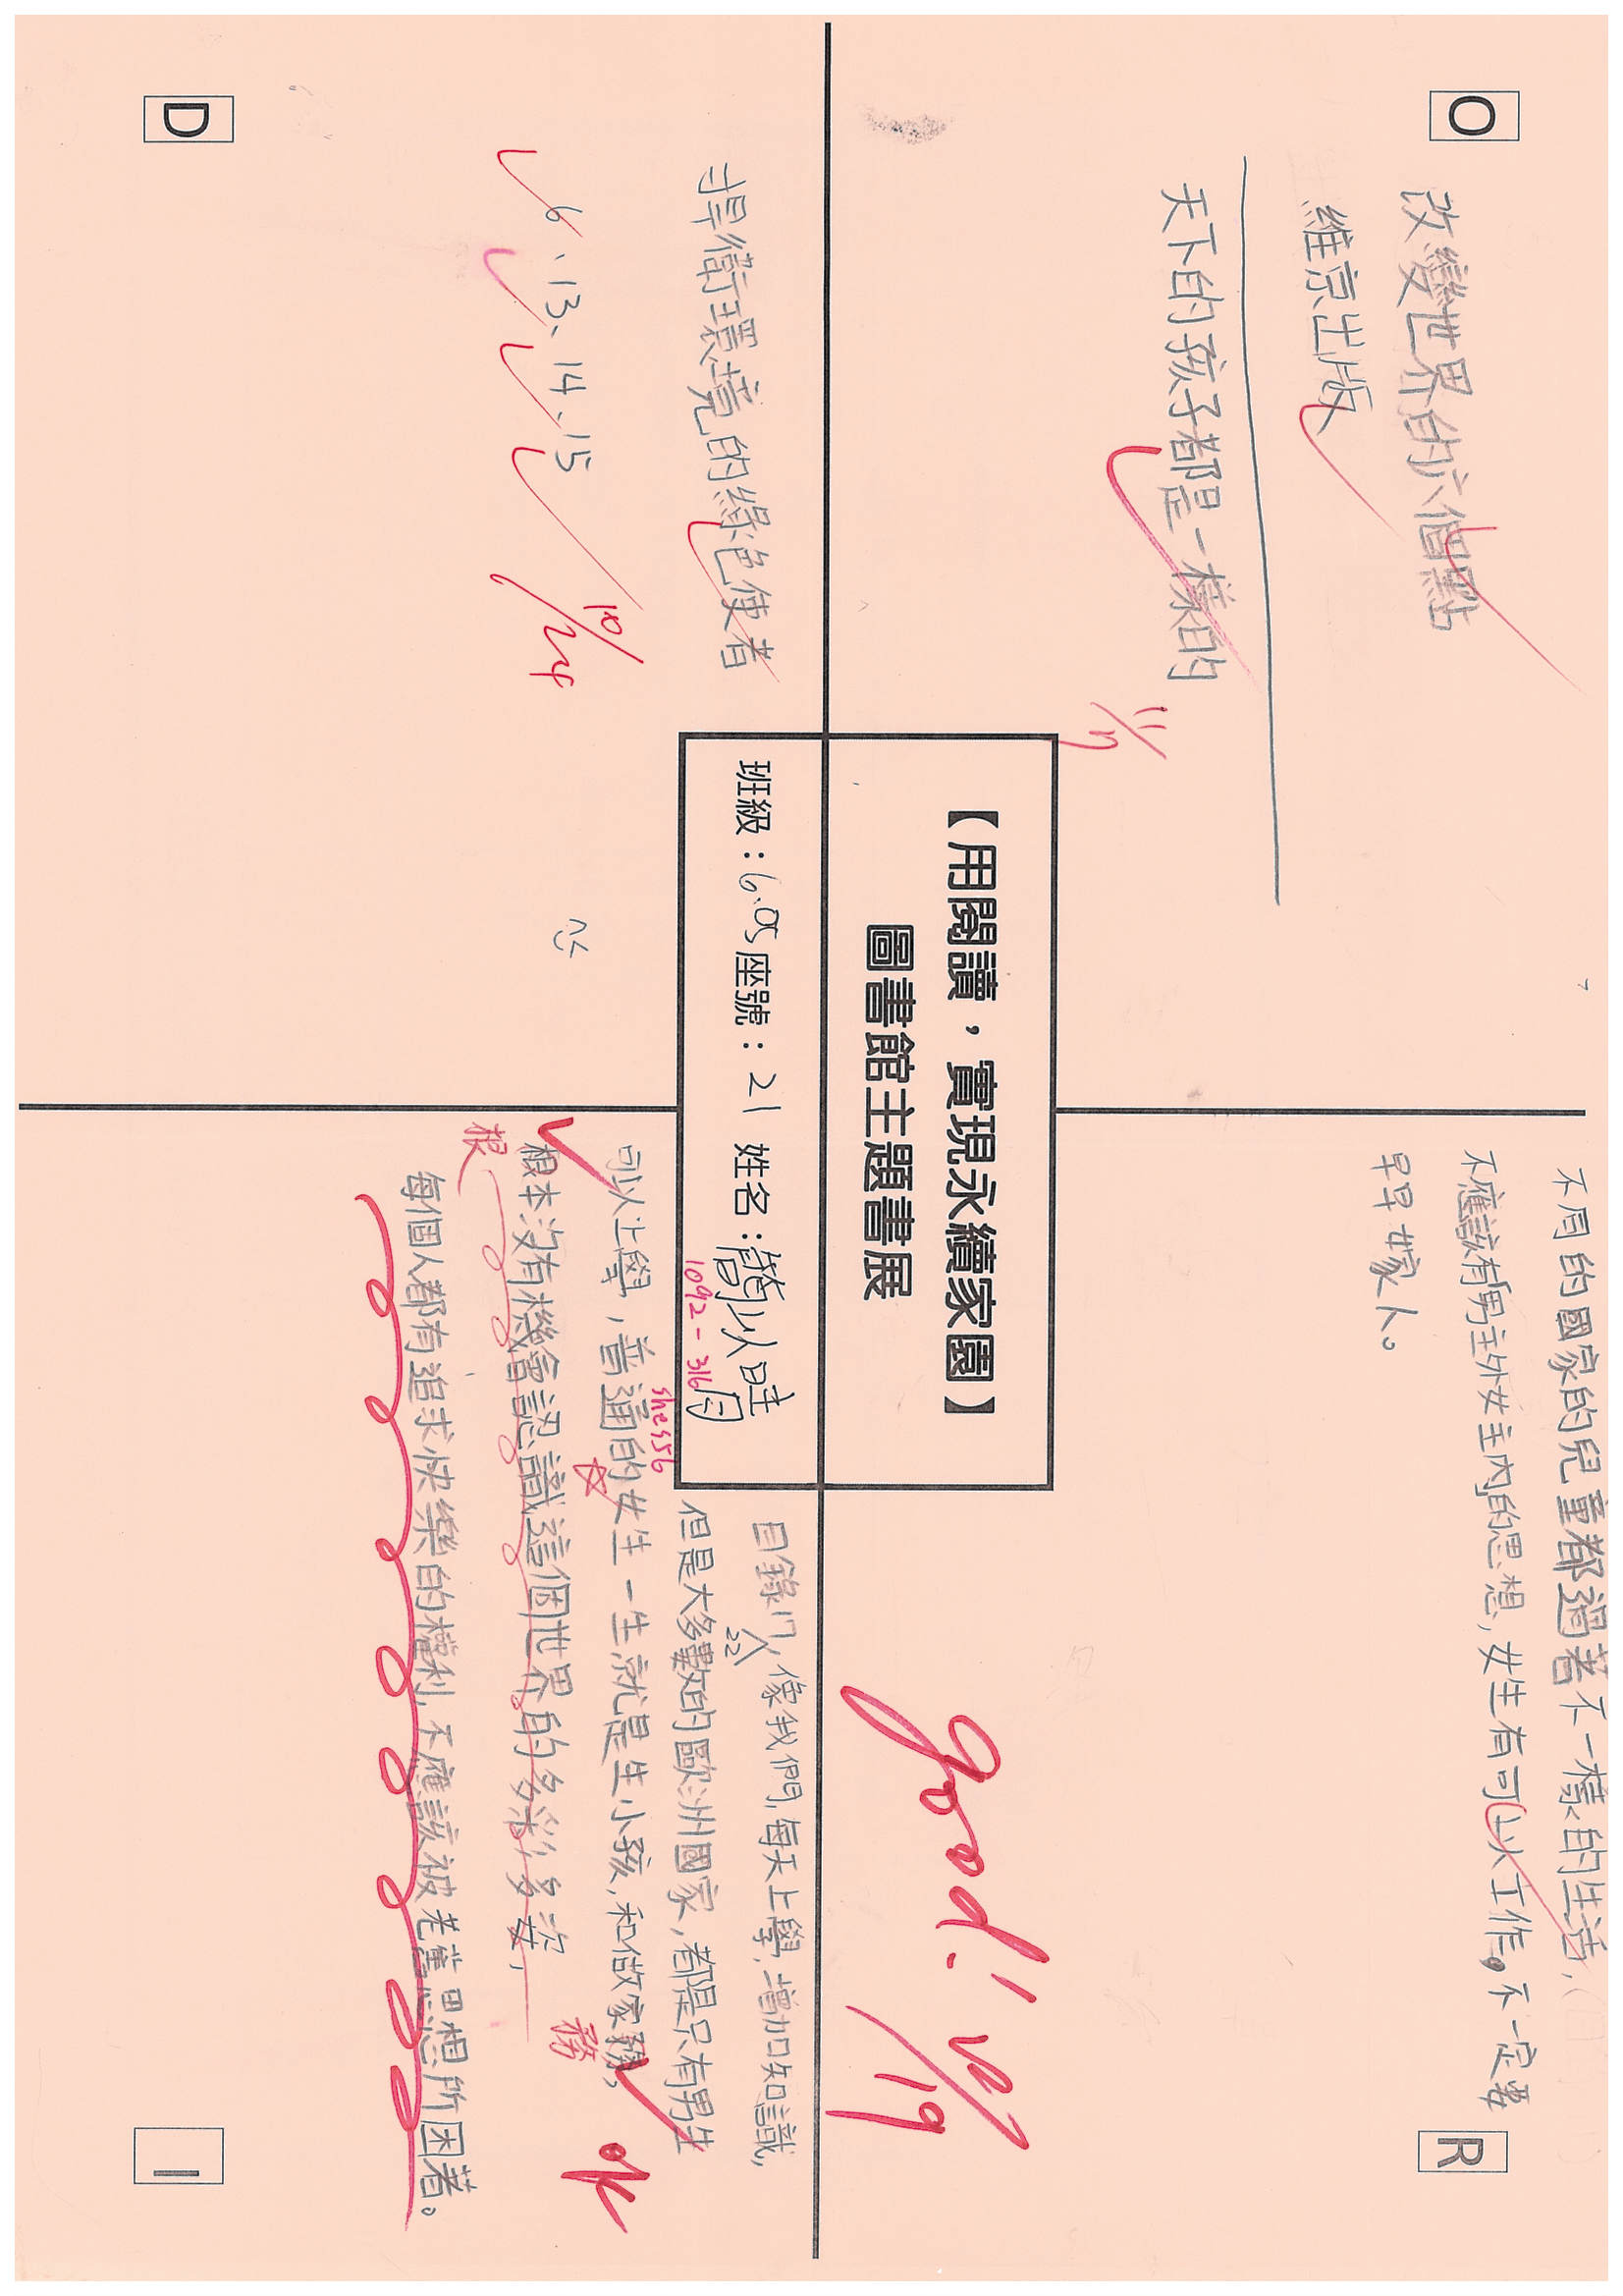 O
改變世界的六個點
維京出版
天下的孩子都是一樣的
11/7
R
不同的國家的兒童都過著不一樣的生活,
不應該有男主外女主內的思想,女生有可以工作。不一定要
早早嫁人。
【用閱讀,實現永續家園】
圖書館主題書展
班級:6.05 座號:21 姓名:
1092-316
she356
good! 12/19
D
捍衛環境的綠色使者
6、13、14、15
10/24
I
目錄17,像我們,每天上學,增加知識,
22
但是大多數的歐洲國家,都是只有男生
可以上學,普通的女生一生就是生小孩,和做家務,
務
根本沒有機會認識這個世界的多彩多姿,
根
每個人都有追求快樂的權利,不應該被老舊思想所困著。
ok